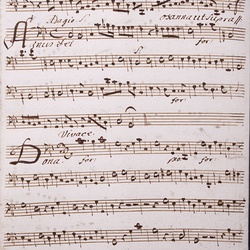 Adagio. S. osanna ut supra
Agnus Dei for
S.
for
Vivace
Dona for po for